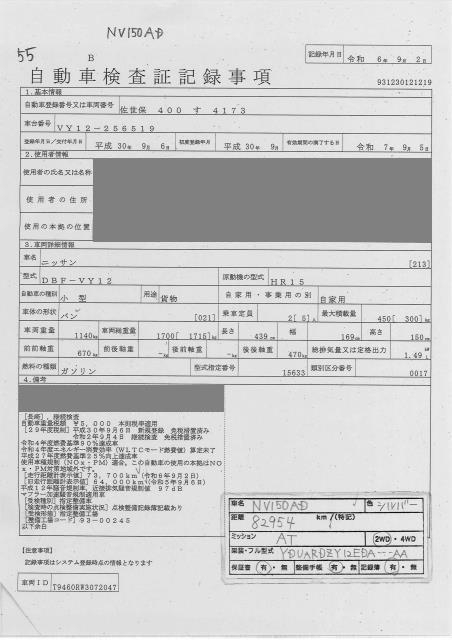 NV150AD
55
B
記録年月日 令和 6年 9月 2日
自動車検査証記録事項
931230121219
1.基本情報
自動車登録番号又は車両番号 佐世保 400 す 4173
車台番号 VY12-256519
登録年月日/交付年月日 平成 30年 9月 6日 初度登録年月 平成 30年 9月 有効期間の満了する日 令和 7年 9月 5日
2.使用者情報
使用者の氏名又は名称
使用者の住所
使用の本拠の位置
3.車両詳細情報
車名 ニッサン [213]
型式 DBF-VY12 原動機の型式 HR15
自動車の種別 小型 用途 貨物 自家用・事業用の別 自家用
車体の形状 バン [021] 乗車定員 2[ 5]人 最大積載量 450[ 300]kg
車両重量 1140kg 車両総重量 1700[ 1715]kg 長さ 439cm 幅 169cm 高さ 150cm
前前軸重 670kg 前後軸重 -kg 後前軸重 -kg 後後軸重 470kg 総排気量又は定格出力 1.49L
燃料の種類 ガソリン 型式指定番号 15633 類別区分番号 0017
4.備考
[長崎],継続検査
自動車重量税額 ¥5,000 本則税率適用
[29年度税制]平成30年9月6日 新規登録 免税措置済み
令和2年9月4日 継続検査 免税措置済み
令和4年度燃費基準90%達成車
令和4年度エネルギー消費効率(WLTCモード燃費値)算定未了
平成27年度燃費基準25%向上達成車
使用車種規制(NOx・PM)適合,この自動車の使用の本拠はNOx・PM対策地域外です。
[走行距離計表示値]73,700km(令和6年9月2日)
[旧走行距離計表示値]64,000km(令和5年9月6日)
平成12年騒音規制車,近接排気騒音規制値 97dB
マフラー加速騒音規制適用車
[受検種別]指定整備車
[検査時の点検整備実施状況]点検整備記録簿記載あり
[受検形態]指定整備工場
[整備工場コード]93-00245
以下余白
車名 NV150AD 色 シルバー
距離 82954 km/(特記)
ミッション AT 2WD・4WD
架装・フル型式 YDUARDZY12EDA---AA
保証書 有・無 整備手帳 有・無 記録簿 有・無
[注意事項]
記録事項はシステム登録時点の情報となります
車両ID T9460RW3072047